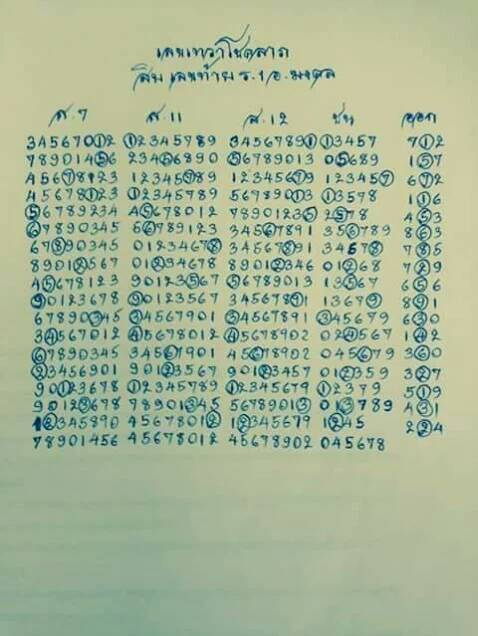 เลขเทวาโชคลาภ
สิบ เลขท้าย ร.1 อ.มงคล
ส.7 ส.11 ส.12 ชน ออก
34567012 12345789 345678911 13457 712
78901456 23456890 56789013 05689 157
45678123 12345789 12345679 1234457 672
45678123 12345789 56789013 13578 116
56789234 45678012 78901235 2578 453
67890345 56789123 34567891 356789 863
67890345 01234678 34567891 34578 785
89012567 01234678 89012346 01268 729
45678123 90123567 90123567 13567 656
90123678 90123567 34567891 13679 891
67890345 34567901 34567891 345679 630
34567012 45678012 45678902 024567 142
67890345 34567901 45678902 045679 360
23456901 90123567 90123457 012359 327
90123678 12345789 12345679 12379 519
90123678 78901345 56789013 013789 431
12345890 45678012 12345679 1245 224
78901456 45678012 45678902 045678